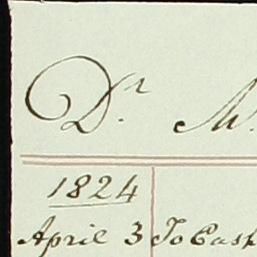 Dr. M.
1824
April 3 To Cash